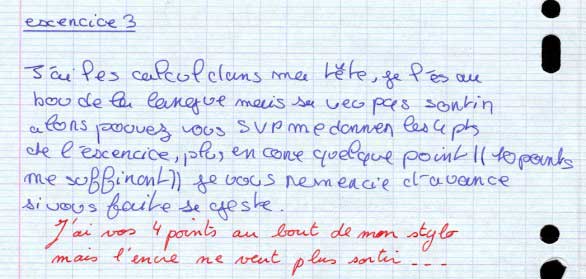 excencice 3
J'ai les calcul dans ma tête, je l'es au
bou de la langue mais sa veo pas sontin
alons pouvez vous SVP me donnen les 4 pts
de l'excencice, plus, encone quelque point (( 10 points
me suffinont)) je vous nemencie d'avance
si vous faite se geste.
J'ai vos 4 points au bout de mon stylo
mais l'encre ne veut plus sortir ---